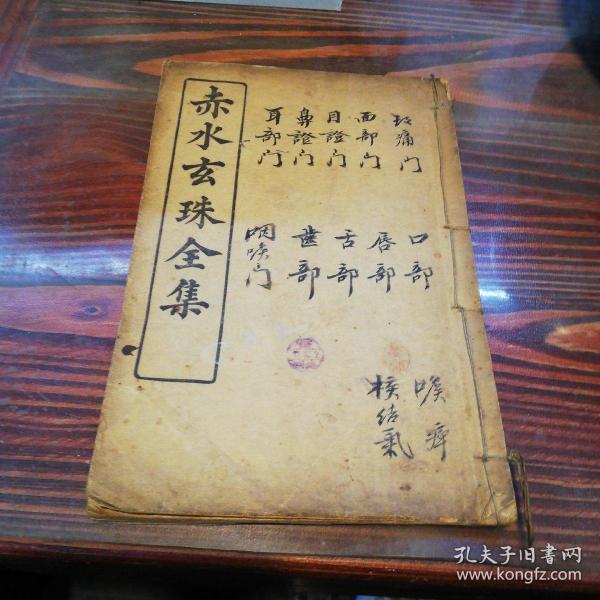 赤水玄珠全集
头痛门
面部门
目證门
鼻證门
耳部门
口部
唇部
舌部
齒部
咽喉门
喉痹
核结氣
孔夫子旧书网
www.kongfz.com